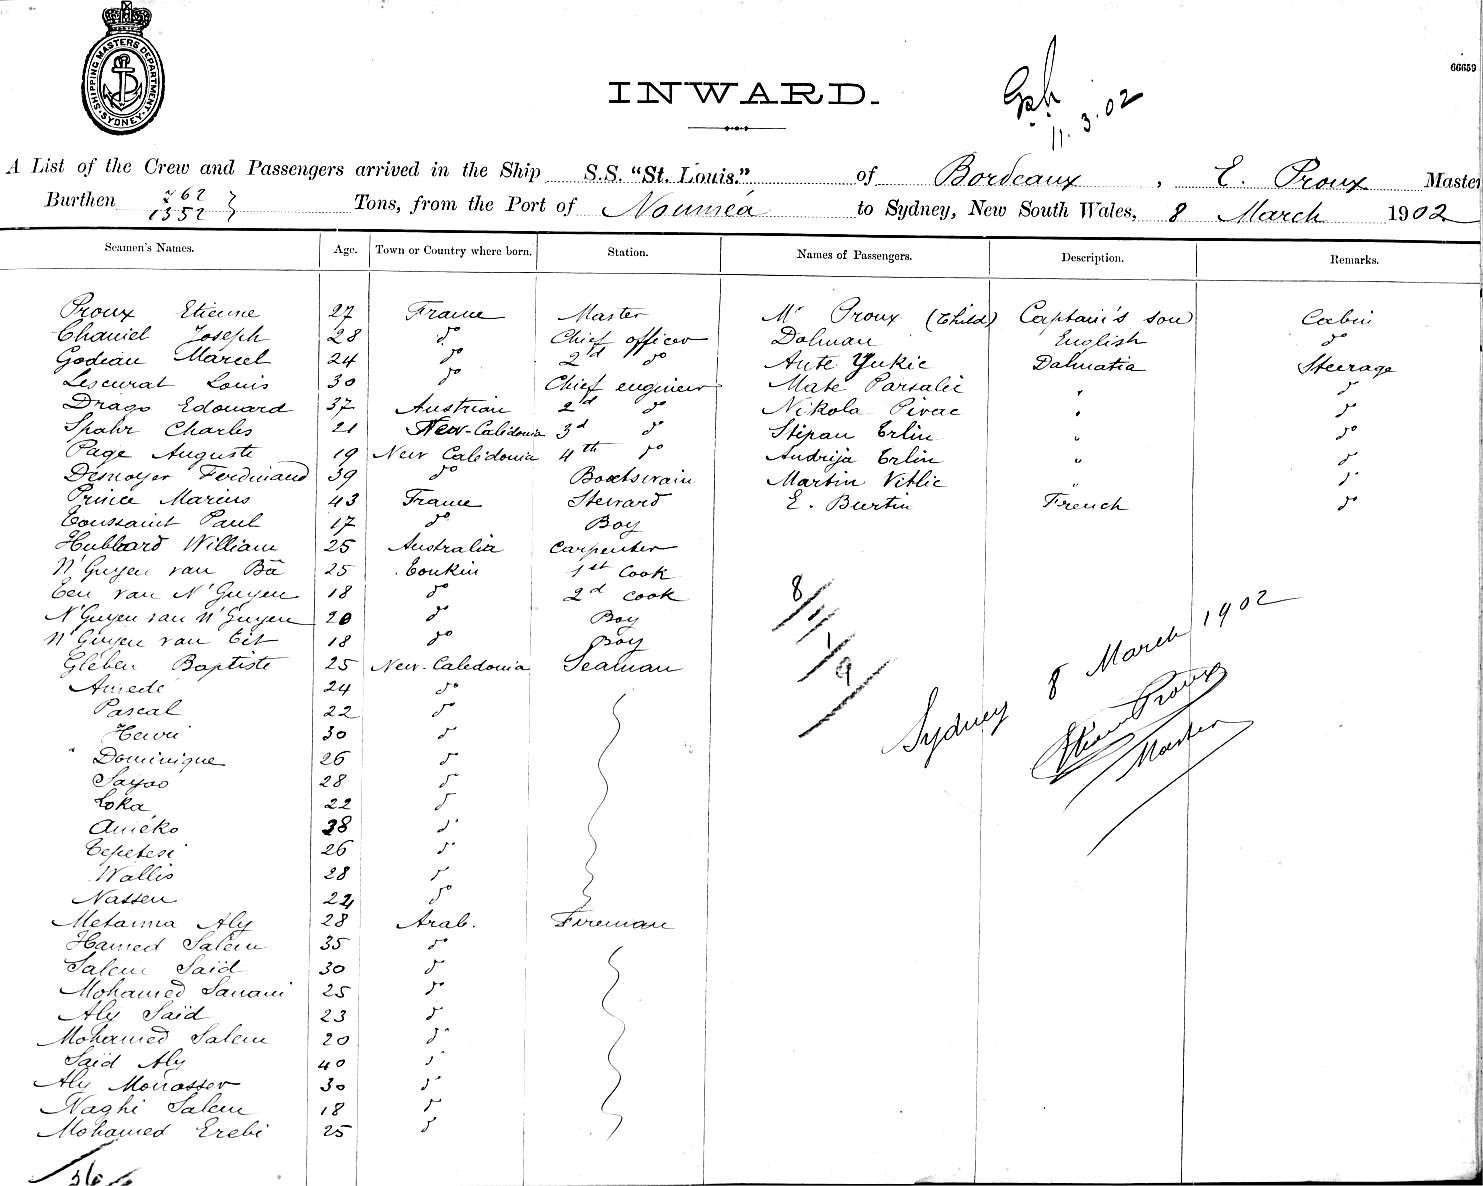 SHIPPING MASTERS DEPARTMENT
SYDNEY
66659
INWARD.
11.3.02
A List of the Crew and Passengers arrived in the Ship S.S. "St. Louis." of Bordeaux, E. Proux Master
Burthen 762 } 1352 } Tons, from the Port of Nouméa to Sydney, New South Wales, 8 March 1902
Seamen's Names. Age. Town or Country where born. Station. Names of Passengers. Description. Remarks.
Proux Etienne 27 France Master Mr Proux (Child) Captain's son Cabin
Chaniel Joseph 28 do Chief officer Dolman English do
Godeau Marcel 24 do 2d do Ante Yukic Dalmatia Steerage
Lescurat Louis 30 do Chief engineer Mate Parsalic " do
Drago Edouard 37 Austrian 2d do Nikola Pivac " do
Spahr Charles 21 New-Calédonia 3d do Stipan Erlin " do
Page Auguste 19 New Calédonia 4th do Andrija Erlin " do
Desnoyer Ferdinand 39 do Boatswain Martin Vitlic " do
Prince Marius 43 France Steward E. Burtin French do
Toussaint Paul 17 do Boy
Hubbard William 25 Australia Carpenter
N'Guyen van Bâ 25 Tonkin 1st Cook
Ten van N'Guyen 18 do 2d Cook
N'Guyen van N'Guyen 20 do Boy
N'Guyen van Tit 18 do Boy
Gleben Baptiste 25 New-Caledonia Seaman
Amede 24 do
Pascal 22 do
30 do
Dominique 26 do
Sayoo 28 do
Loka 22 do
Améko 38 do
Tepetesi 26 do
Wallis 28 do
Nassen 24 do
Metanna Aly 28 Arab. Fireman
Hamed Salem 35 do
Salem Saïd 30 do
Mohamed Sanani 25 do
Aly Saïd 23 do
Mohamed Salem 20 do
Saïd Aly 40 do
Aly Monasser 30 do
Naghi Salem 18 do
Mohamed Erebi 25 do
36
8/1/1/9/
Sydney 8 March 1902
Etienne Proux
Master